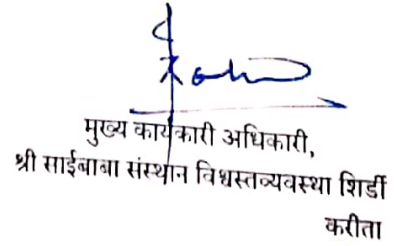 मुख्य कार्यकारी अधिकारी,
श्री साईबाबा संस्थान विश्वस्तव्यवस्था शिर्डी
करीता